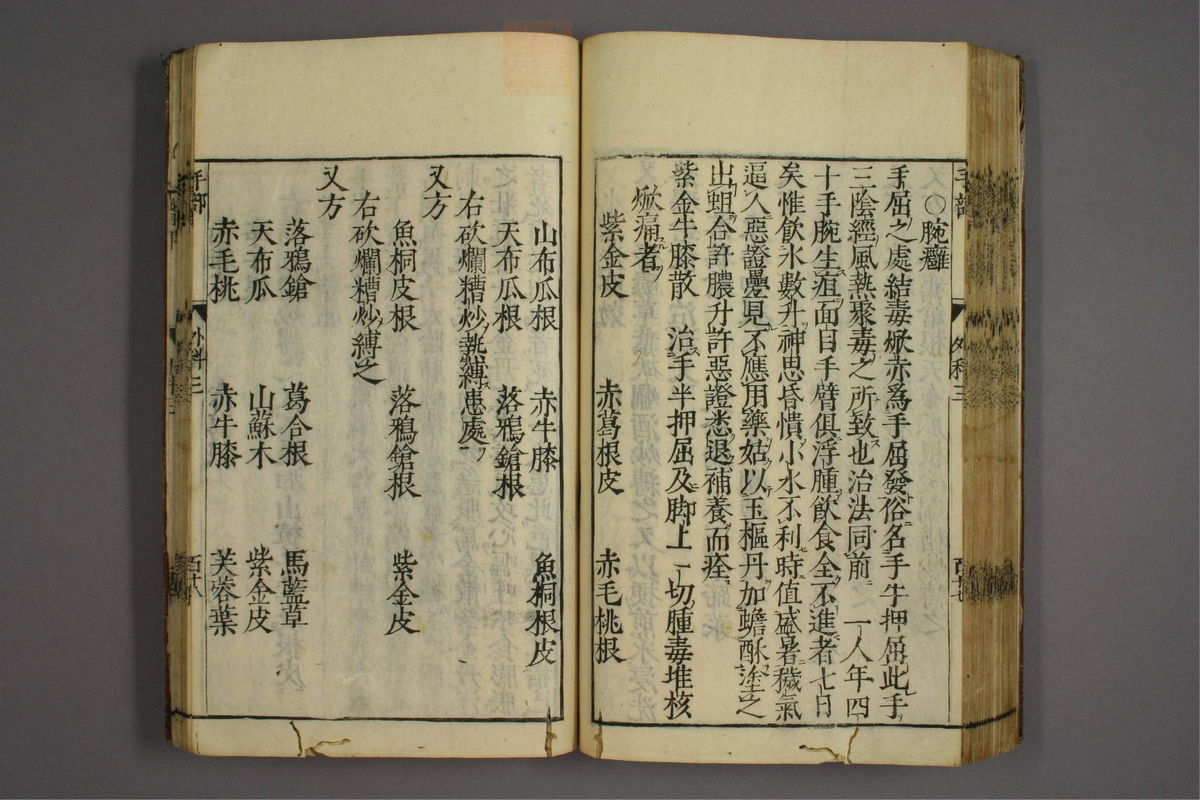 ○腕癰
手屈之處結毒焮赤爲手屈發俗名手牛押屈此手
三陰經風熱聚毒之所致也治法同前　一人年四
十手腕生疽面目手臂俱浮腫飲食全不進者七日
矣惟飲氷數升神思昏憒小水不利時值盛暑穢氣
逼人惡證疊見不應用藥姑以玉樞丹加蟾酥塗之
出蛆合許膿升許惡證悉退補養而痊
紫金牛膝散　治手半押屈及脚上一切腫毒堆核
焮痛者
紫金皮　赤葛根皮　赤毛桃根
手部　外科三　百廿七
山布瓜根　赤牛膝　魚桐根皮
天布瓜根　落鴉鎗根
右砍爛糟炒熱縛患處
又方
魚桐皮根　落鴉鎗根　紫金皮
右砍爛糟炒縛之
又方
落鴉鎗　葛合根　馬藍草
天布瓜　山蘇木　紫金皮
赤毛桃　赤牛膝　芙蓉葉
手部　外科三　百廿八